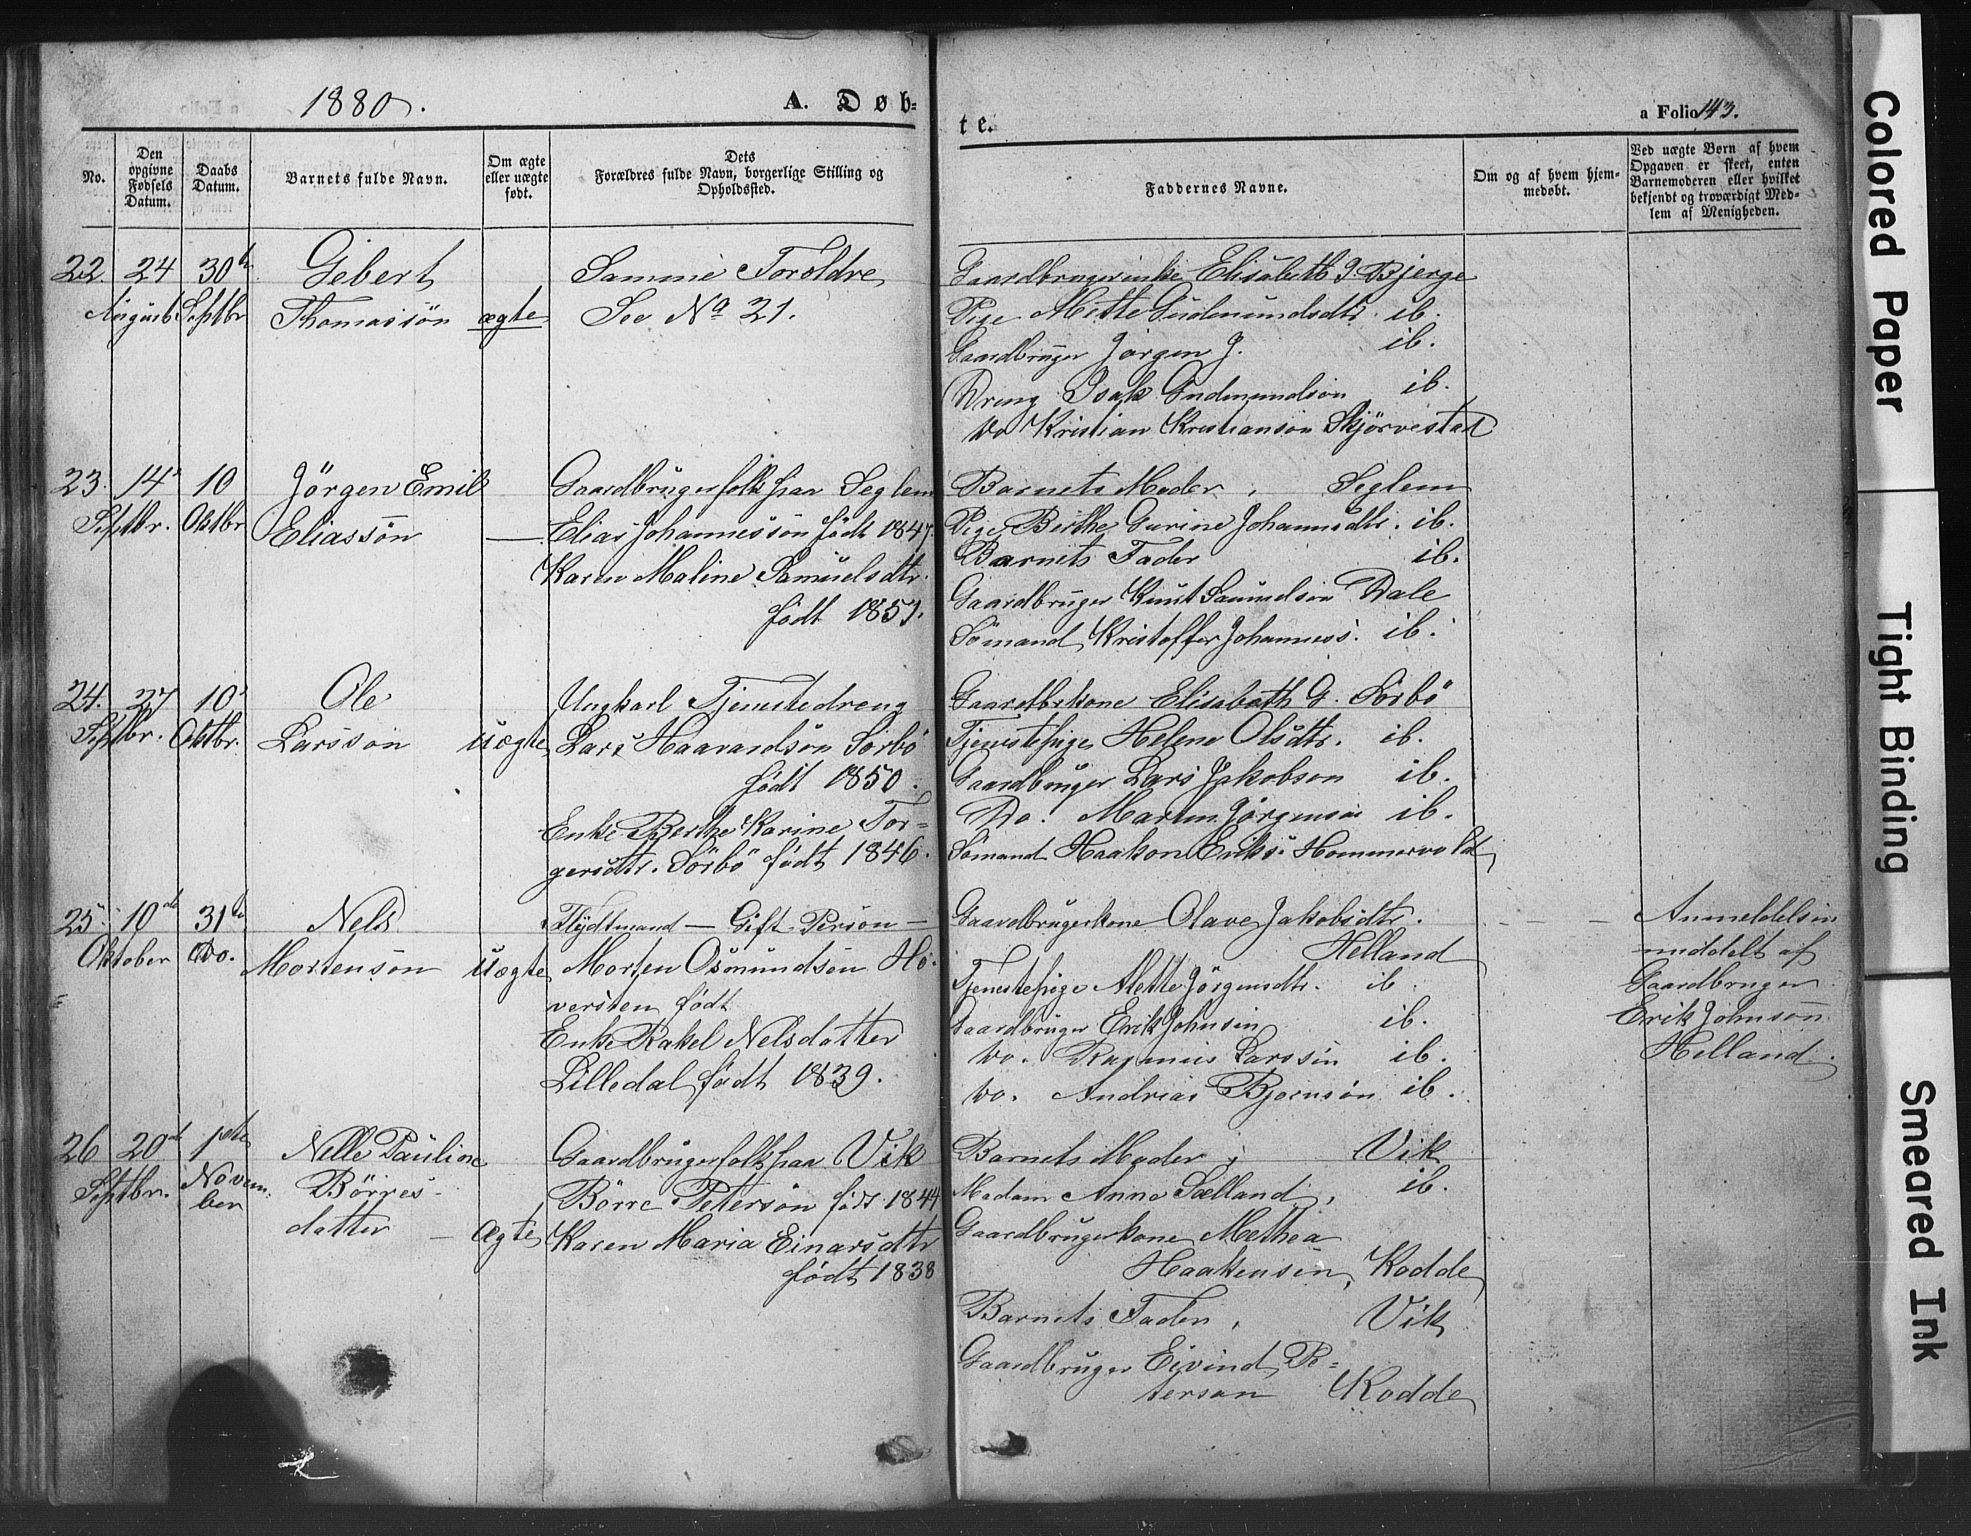 1880.
A. Døb-
te.
a Folio 143.
No.
Den opgivne Fødsels Datum.
Daabs Datum.
Barnets fulde Navn.
Om ægte eller uægte født.
Dets
Forældres fulde Navn, borgerlige Stilling og
Opholdssted.
Faddernes Navne.
Om og af hvem hjem-
medøbt.
Ved uægte Børn af hvem
Opgaven er skeet, enten
Barnemoderen eller hvilket
bekjendt og troværdigt Med-
lem af Menigheden.
22. 24 30te Gebert Samme Foroldre
August Septbr Thomassön ægte See No 21.
Gaardbrugerenke Elisabeth J. Bjerge
Pige Mette Gudmundsdtr. ib.
Gaardbruger Jörgen J. ib.
Dreng Isak Gudmundsön ib.
Do Kristian Kristiansön Skjörvestad
23. 14de 10 Jörgen Emil Gaardbrugerfolk fraa Seglem
Septbr. Oktbr Eliassön — Elias Johannessön födt 1847.
Karen Maline Samuelsdtr.
födt 1857.
Barnets Moder, Seglem
Pige Berthe Gurine Johannsdtr. ib.
Barnets Fader ib.
Gaardbruger Knut Samuelsön Dale
Sömand Kristoffer Johanness. ib.
24. 27 10de Ole Ungkarl Tjenestedreng
Septbr. Oktbr. Larssön uægte Lars Haavardsön Sörbö
födt 1850.
Enke Berthe Karine Tor-
gersdtr. Sörbö födt 1846.
Gaardbrkone Elisabeth G. Sörbö
Tjenestepige Helene Olsdtr. ib.
Gaardbruger Lars Jakobsön ib.
Do. Marten Jörgensön ib.
Sömand Haakon Eriks. Hommervold
25. 10de 31te Nels Flÿdtmand — Gift Person —
Oktober Do. Mortensön uægte Morten Osmundsön Hö-
versten födt
Enke Rakel Nelsdatter
Lilledal födt 1839.
Gaardbrugerkone Olave Jakobsdtr.
Helland
Tjenestepige Mette Jörgensdtr. ib.
Gaardbruger Erik Johnsön ib.
Do. Rasmus Larssön ib.
Do. Andrias Bjornsön ib.
— — Anmeldelsen
meddelt af
Gaardbruger
Erik Johnsön
Helland.
26 20de 1ste Nelle Pauline Gaardbrugerfolk fraa Vik
Septbr. Novem-
ber Börres-
datter — Ægte Börre Petersön födt 1844
Karen Maria Einarsdtr
födt 1838
Barnets Moder, Vik
Madam Anne Sælland, ib.
Gaardbrugerkone Methea
Haakensen, Kodde
Barnets Fader, Vik
Gaardbruger Eivind Pe-
terson Kodde
Colored Paper
Tight Binding
Smeared Ink